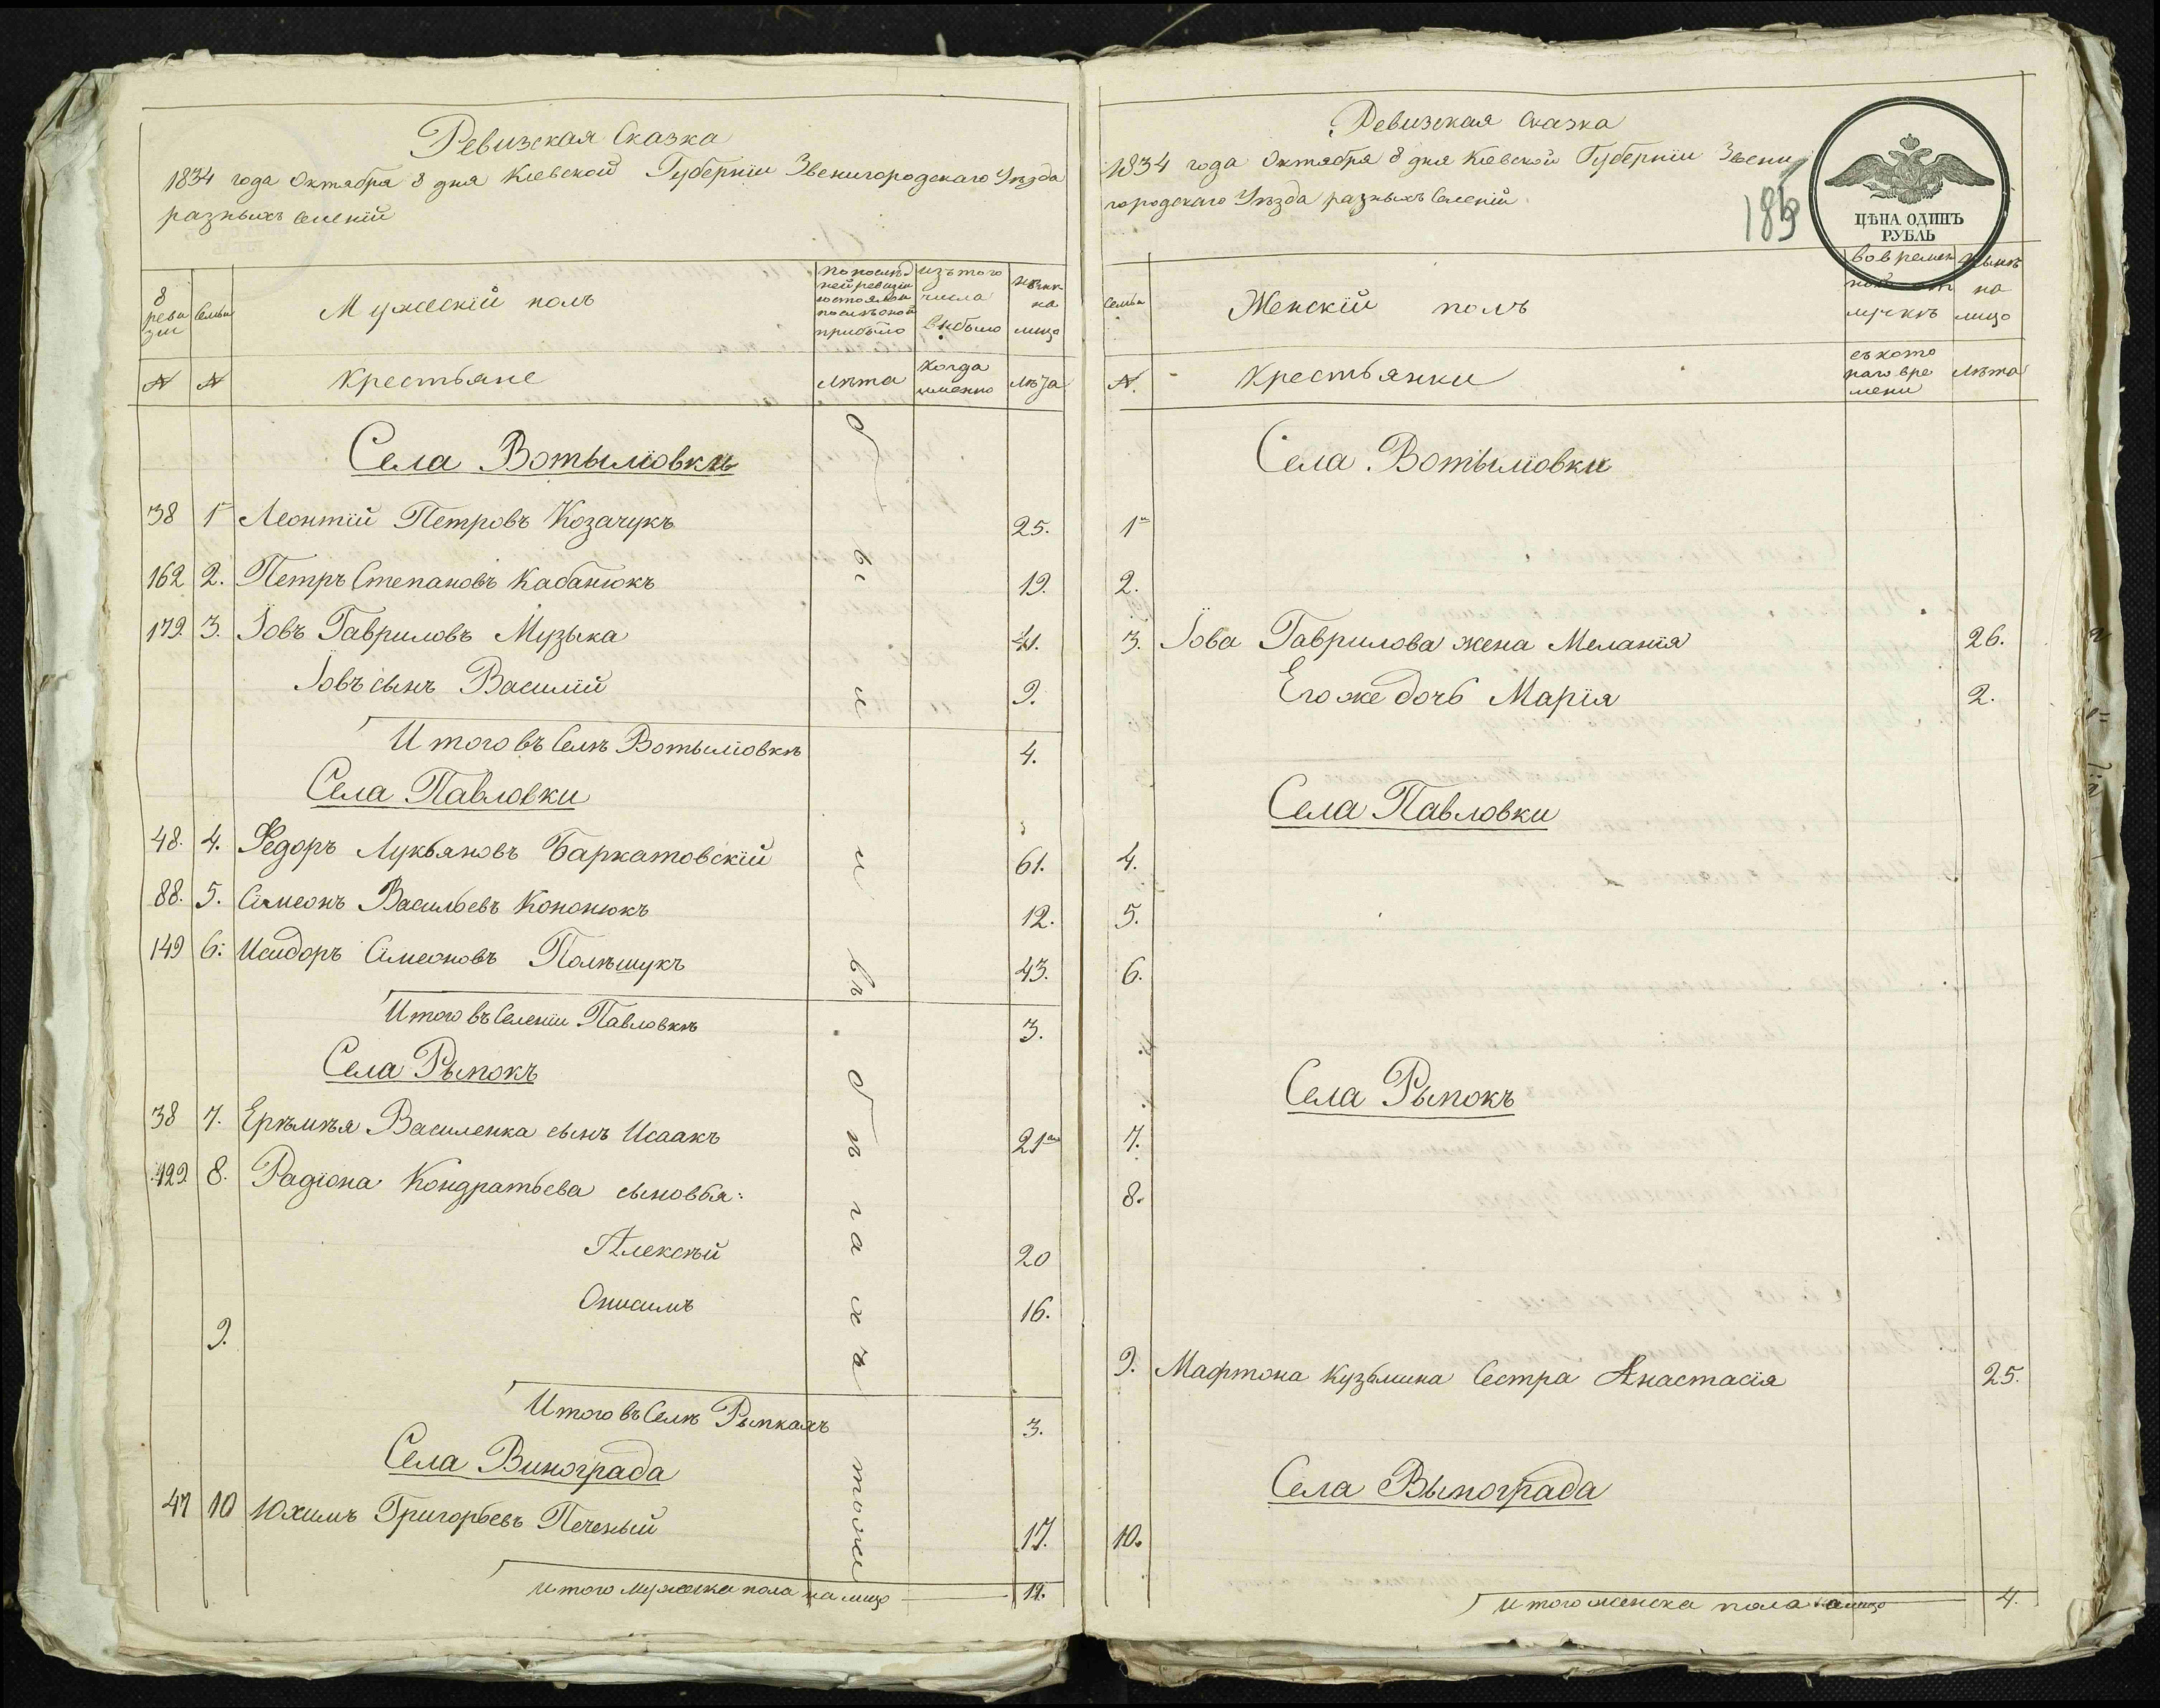 Ревизская Сказка
1834 года Октября 8 дня Кіевской Губерніи Звенигородскаго Уѣзда
разныхъ Селеній
8 ревизіи
Семьи
Мужескій полъ
по послѣдней ревизіи состояло и послѣ оной прибыло
изъ того числа выбыло
Нынѣ на лицо
№
№
Крестьяне
лѣта
когда именно
лѣта
Села Вотылювки
38 1й Леонтій Петровъ Козачукъ 25.
162 2. Петръ Степановъ Кабанюкъ 19.
179. 3. Іовъ Гавриловъ Музыка 41.
Іовъ сынъ Василій 9.
Итого въ Селѣ Вотылювкѣ 4.
Села Павловки
48. 4. Федоръ Лукьяновъ Баркатовскій 61.
88. 5. Симеонъ Васильевъ Кононюкъ 12.
149 6. Исидоръ Симеоновъ Полѣшукъ 43.
Итого въ Селеніи Павловкѣ 3.
Села Рыпокъ
38 7. Ерѣмѣя Василенка сынъ Исаакъ 21
129. 8. Радіона Кондратьева сыновья:
Алексѣй 20
Онисимъ 16.
9.
Итого въ Селѣ Рыпкахъ 3.
Села Винограда
47 10 Юхимъ Григорьевъ Печеный 17.
Итого мужеска пола на лицо 11.
были въ бѣгахъ тожи
Ревизская Сказка
1834 года Октября 8 дня Кіевской Губерніи Звени
городскаго Уѣзда разныхъ Селеній
ЦѢНА ОДИНЪ
РУБЛЬ
Семьи
Женскій полъ
во временной отлучкѣ
Нынѣ на лицо
№.
Крестьянки
съ котораго времени
лѣта
Села Вотылювки
1й
2.
3. Іова Гаврилова жена Меланія 26.
Его же дочь Марія 2.
Села Павловки
4.
5.
6.
Села Рыпокъ
7.
8.
9. Мафтона Кузьмина Сестра Анастасія 25.
Села Вынограда
10.
Итого женска пола на лицо 4.